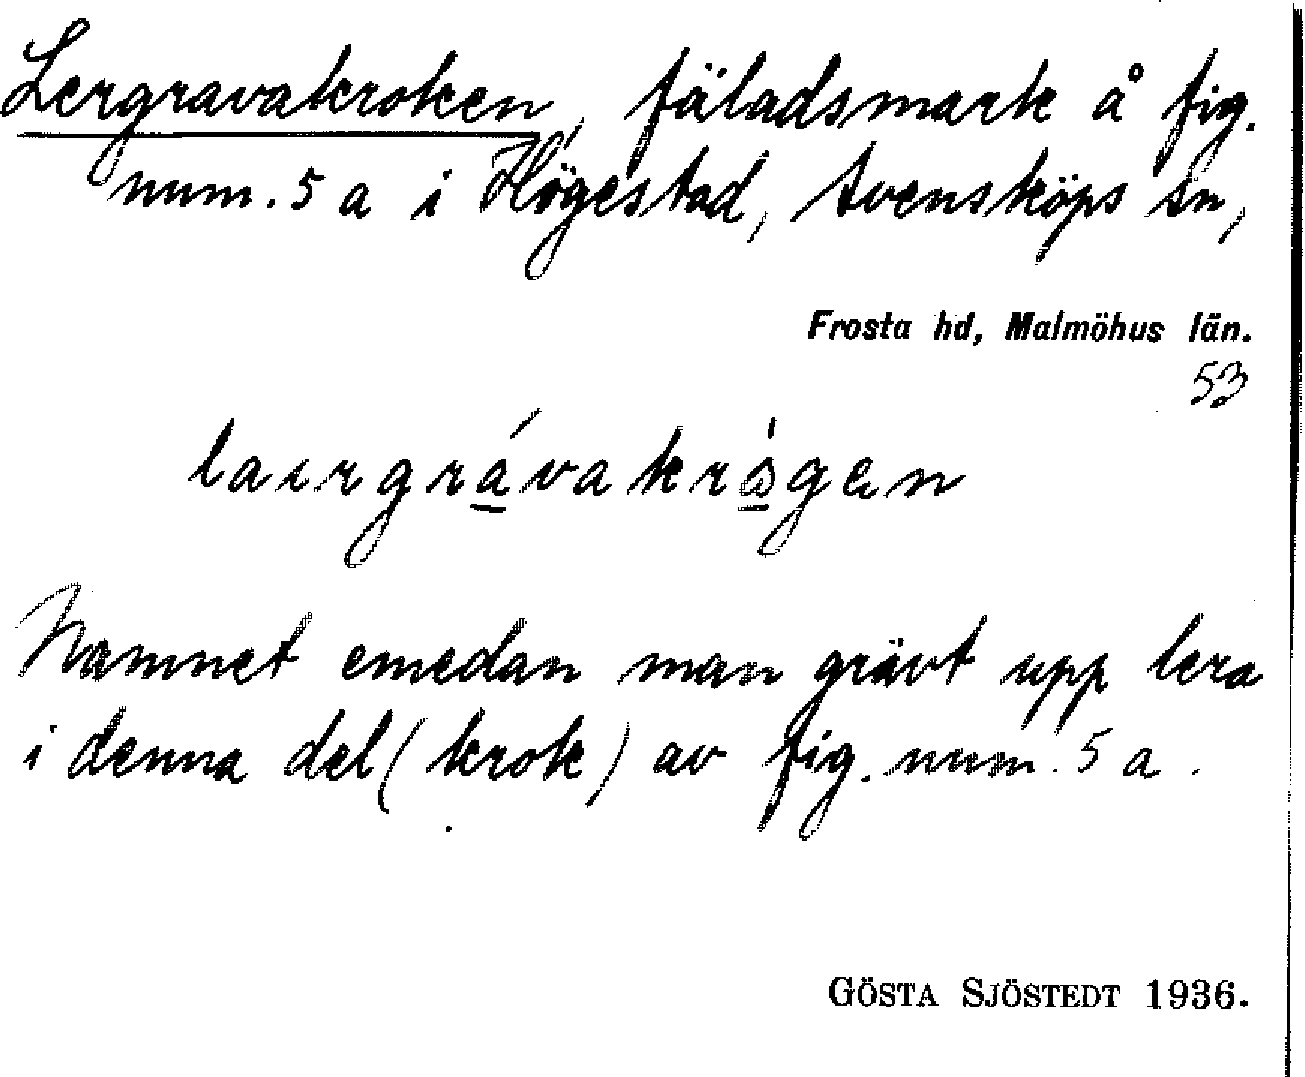 Lergravakroken, fäladsmark å fig.
num. 5 a i Högestad, Svensköps sn,
Frosta hd, Malmöhus län.
53
Namnet emedan man grävt upp lera
i denna del (krok) av fig. num. 5 a.
GÖSTA SJÖSTEDT 1936.